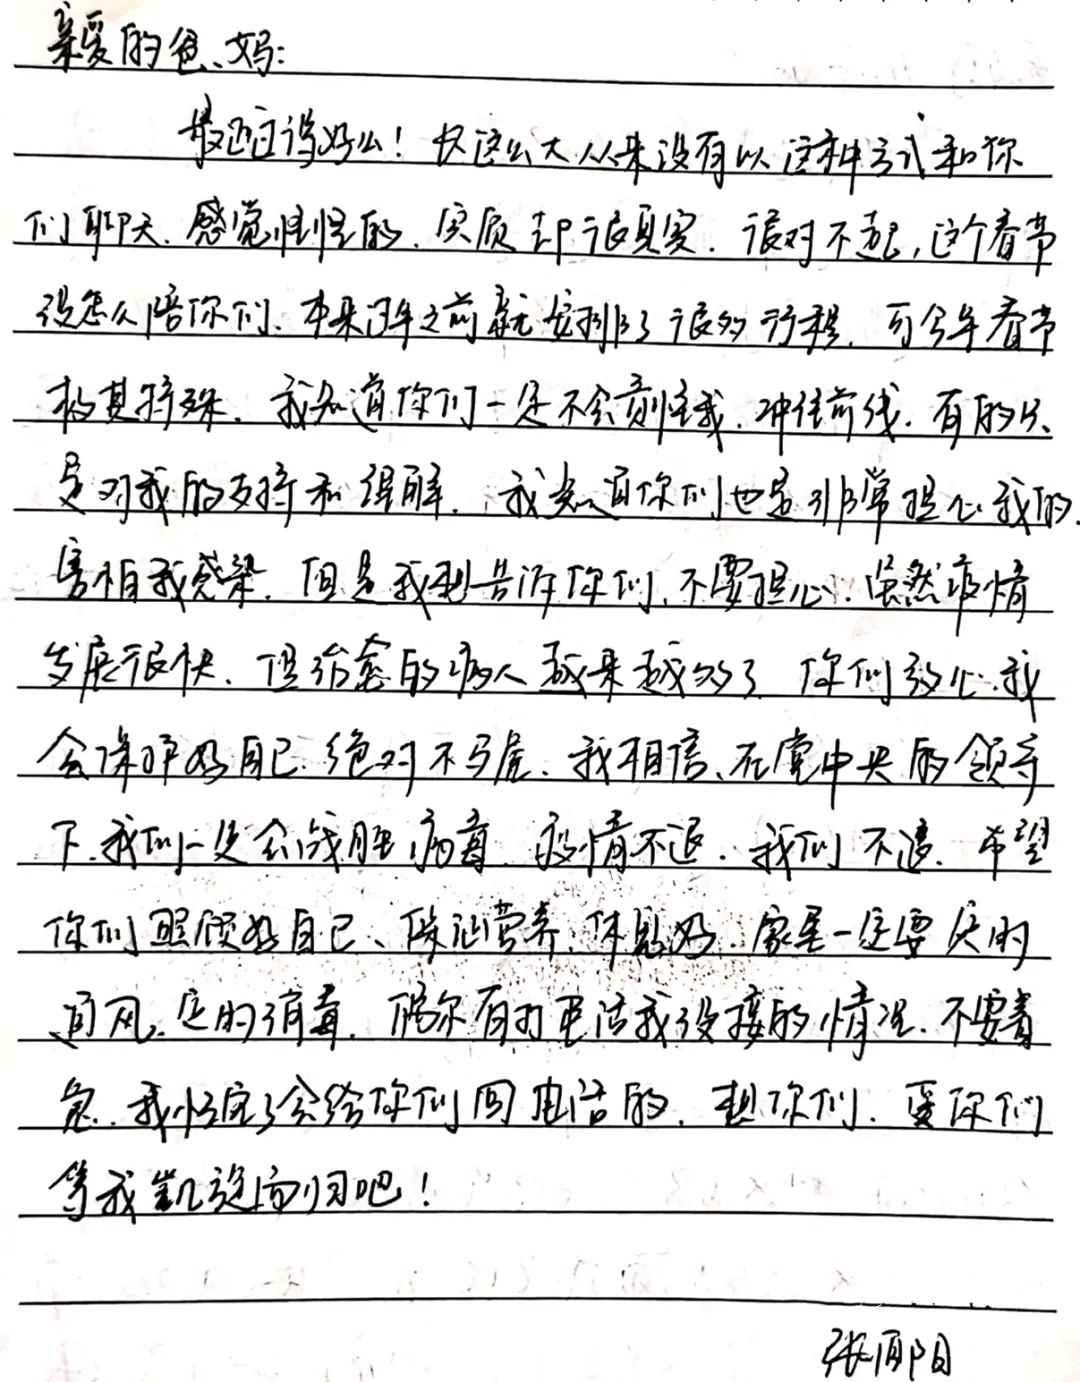 亲爱的爸、妈:
最近过得好么!长这么大从来没有以这种方式和你
们聊天、感觉怪怪的、实质却很真实.很对不起,这个春节
没怎么陪你们、本来年之前就安排了很多行程、可今年春节
极其特殊、我知道你们一定不会责怪我、冲往前线、有的只
是对我的支持和理解、我知道你们也是非常担心我的、
害怕我感染、但是我想告诉你们、不要担心、虽然疫情
发展很快、但治愈的病人越来越多了、你们放心、我
会保护好自己、绝对不马虎、我相信、在党中央的领导
下、我们一定会战胜病毒、疫情不退、我们不退、希望
你们照顾好自己、保证营养、休息好、家里一定要定时
通风、定时消毒、偶尔有打电话我没接的情况、不要着
急、我忙完了会给你们回电话的、想你们、爱你们
等我凯旋而归吧!
张阳